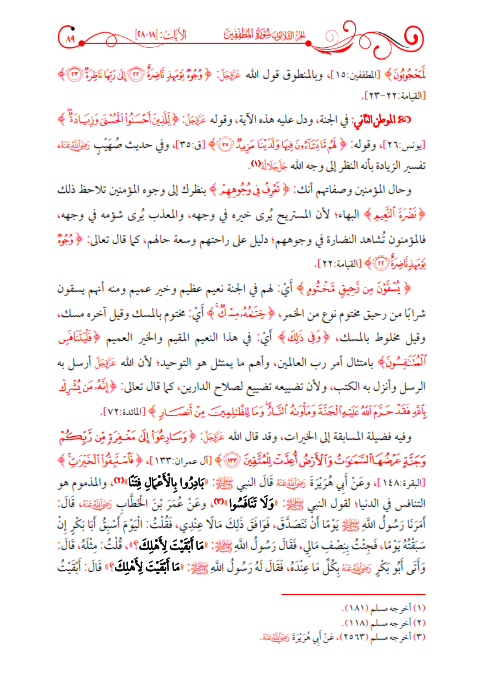 الجزء الثلاثون سُورَةُ المُطَفِّفِين الآيات: [١٨-٢٨] ٨٩
لَّمَحْجُوبُونَ﴾ [المطففين:١٥]، وبالمنطوق قول الله عَزَّوَجَلَّ: ﴿وُجُوهٌ يَوْمَئِذٍ نَّاضِرَةٌ ٢٢ إِلَىٰ رَبِّهَا نَاظِرَةٌ ٢٣﴾
[القيامة:٢٢-٢٣].
الموطن الثاني: في الجنة، ودل عليه هذه الآية، وقوله عَزَّوَجَلَّ: ﴿لِّلَّذِينَ أَحْسَنُوا۟ الْحُسْنَىٰ وَزِيَادَةٌ﴾
[يونس:٢٦]، وقوله: ﴿لَهُم مَّا يَشَآءُونَ فِيهَا وَلَدَيْنَا مَزِيدٌ ٣٥﴾ [ق:٣٥]، وفي حديث صُهَيْبٍ رَضِيَ اللَّهُ عَنْهُ،
تفسير الزيادة بأنه النظر إلى وجه الله جَلَّ جَلَالُهُ(١).
وحال المؤمنين وصفاتهم أنك: ﴿تَعْرِفُ فِى وُجُوهِهِمْ﴾ بنظرك إلى وجوه المؤمنين تلاحظ ذلك
﴿نَضْرَةَ النَّعِيمِ﴾ البهاء؛ لأن المستريح يُرى خيره في وجهه، والمعذب يُرى شؤمه في وجهه،
فالمؤمنون تُشاهد النضارة في وجوههم؛ دليل على راحتهم وسعة حالهم، كما قال تعالى: ﴿وُجُوهٌ
يَوْمَئِذٍ نَّاضِرَةٌ ٢٢﴾ [القيامة:٢٢].
﴿يُسْقَوْنَ مِن رَّحِيقٍ مَّخْتُومٍ﴾ أَيْ: لهم في الجنة نعيم عظيم وخير عميم ومنه أنهم يسقون
شرابًا من رحيق مختوم نوع من الخمر، ﴿خِتَٰمُهُۥ مِسْكٌ﴾ أَيْ: مختوم بالمسك وقيل آخره مسك،
وقيل مخلوط بالمسك، ﴿وَفِى ذَٰلِكَ﴾ أَيْ: في هذا النعيم المقيم والخير العميم ﴿فَلْيَتَنَافَسِ
الْمُتَنَٰفِسُونَ﴾ بامتثال أمر رب العالمين، وأهم ما يمتثل هو التوحيد؛ لأن الله عَزَّوَجَلَّ أرسل به
الرسل وأنزل به الكتب، ولأن تضييعه تضييع لصلاح الدارين، كما قال تعالى: ﴿إِنَّهُۥ مَن يُشْرِكْ
بِاللَّهِ فَقَدْ حَرَّمَ اللَّهُ عَلَيْهِ الْجَنَّةَ وَمَأْوَىٰهُ النَّارُ وَمَا لِلظَّٰلِمِينَ مِنْ أَنصَارٍ﴾ [المائدة:٧٢].
وفيه فضيلة المسابقة إلى الخيرات، وقد قال الله عَزَّوَجَلَّ: ﴿وَسَارِعُوٓا۟ إِلَىٰ مَغْفِرَةٍ مِّن رَّبِّكُمْ
وَجَنَّةٍ عَرْضُهَا السَّمَٰوَٰتُ وَالْأَرْضُ أُعِدَّتْ لِلْمُتَّقِينَ ١٣٣﴾ [آل عمران:١٣٣]، ﴿فَاسْتَبِقُوا۟ الْخَيْرَٰتِ﴾
[البقرة:١٤٨]، وعَنْ أَبِي هُرَيْرَةَ رَضِيَ اللَّهُ عَنْهُ قَالَ النبي ﷺ: «بَادِرُوا بِالْأَعْمَالِ فِتَنًا»(٢)، والمذموم هو
التنافس في الدنيا؛ لقول النبي ﷺ: «وَلَا تَنَافَسُوا»(٣)، وعَنْ عُمَرَ بْنَ الْخَطَّابِ رَضِيَ اللَّهُ عَنْهُ، قَالَ:
أَمَرَنَا رَسُولُ اللَّهِ ﷺ يَوْمًا أَنْ نَتَصَدَّقَ، فَوَافَقَ ذَلِكَ مَالًا عِنْدِي، فَقُلْتُ: الْيَوْمَ أَسْبِقُ أَبَا بَكْرٍ إِنْ
سَبَقْتُهُ يَوْمًا، فَجِئْتُ بِنِصْفِ مَالِي، فَقَالَ رَسُولُ اللَّهِ ﷺ: «مَا أَبْقَيْتَ لِأَهْلِكَ؟» قُلْتُ: مِثْلَهُ، قَالَ:
وَأَتَى أَبُو بَكْرٍ رَضِيَ اللَّهُ عَنْهُ بِكُلِّ مَا عِنْدَهُ، فَقَالَ لَهُ رَسُولُ اللَّهِ ﷺ: «مَا أَبْقَيْتَ لِأَهْلِكَ؟» قَالَ: أَبْقَيْتُ
(١) أخرجه مسلم (١٨١).
(٢) أخرجه مسلم (١١٨).
(٣) أخرجه مسلم (٢٥٦٣)، عَنْ أَبِي هُرَيْرَةَ رَضِيَ اللَّهُ عَنْهُ.